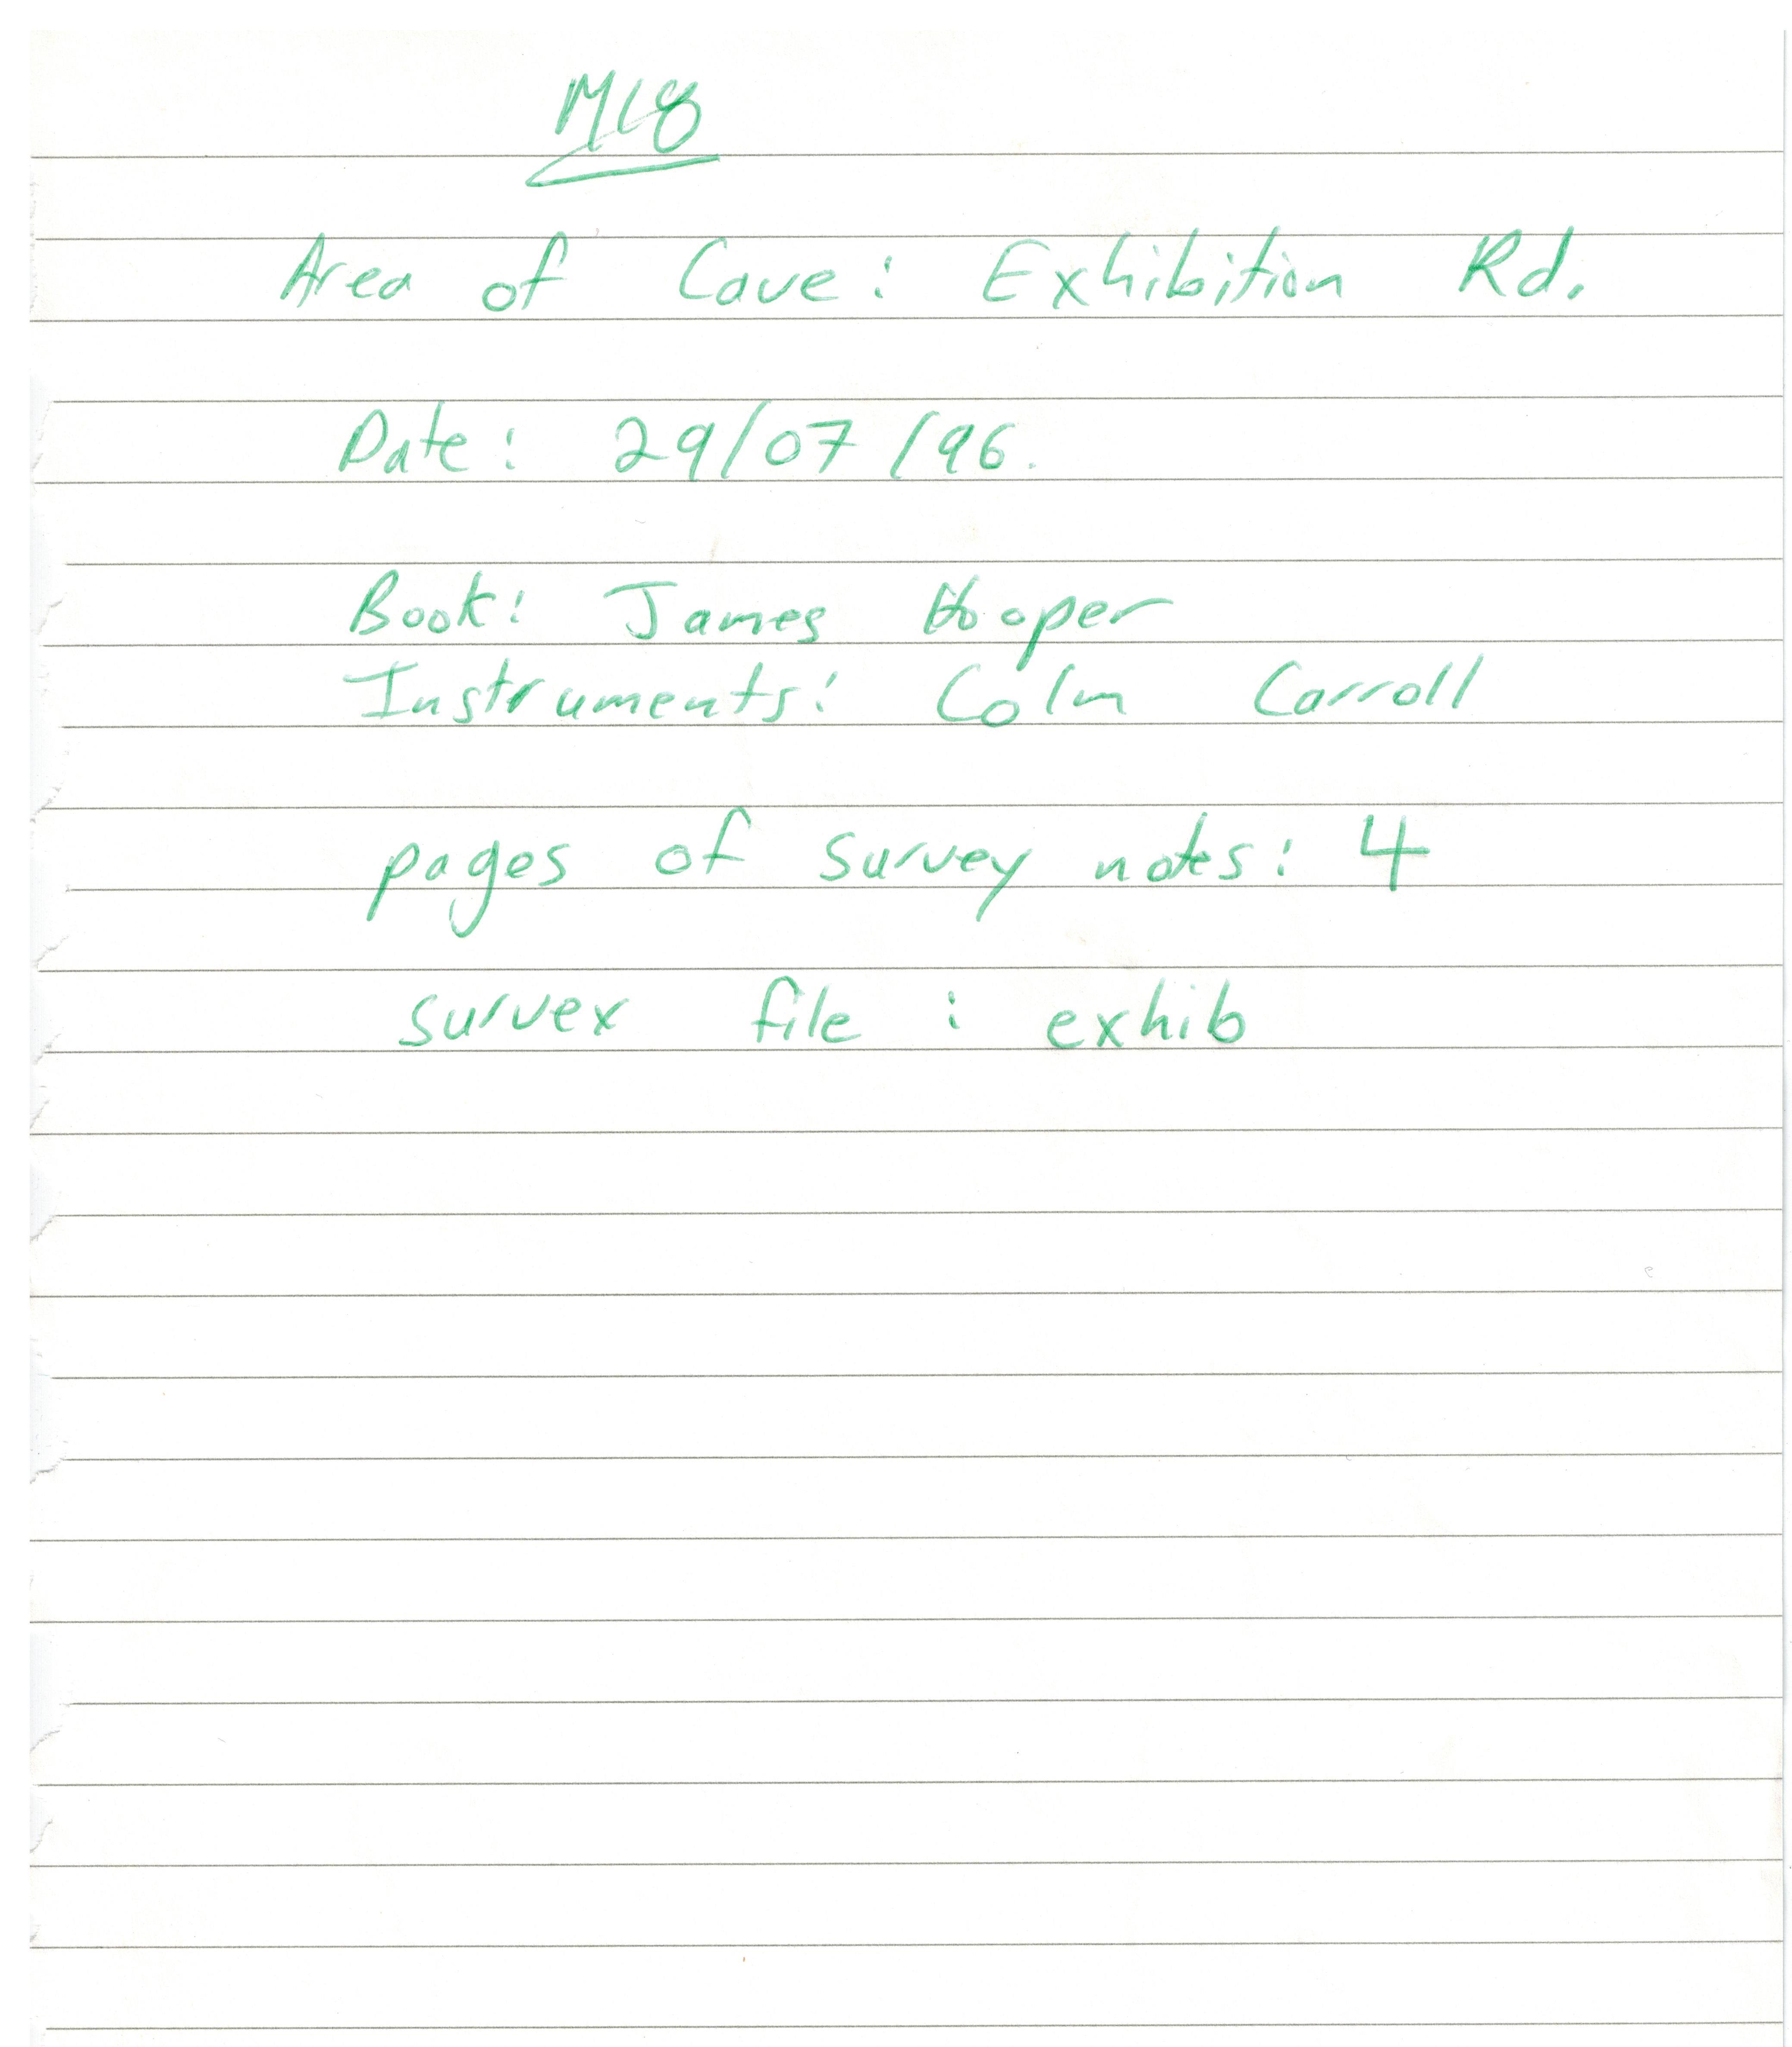 M18
Area of Cave: Exhibition Rd.
Date: 29/07/96.
Book: James Hooper
Instruments: Colm Carroll
pages of survey notes: 4
survex file: exhib